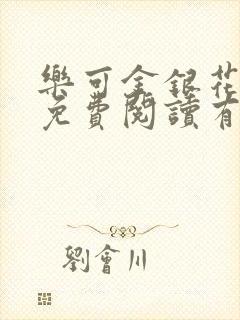 樂可金銀花
免費閱讀有
劉會川